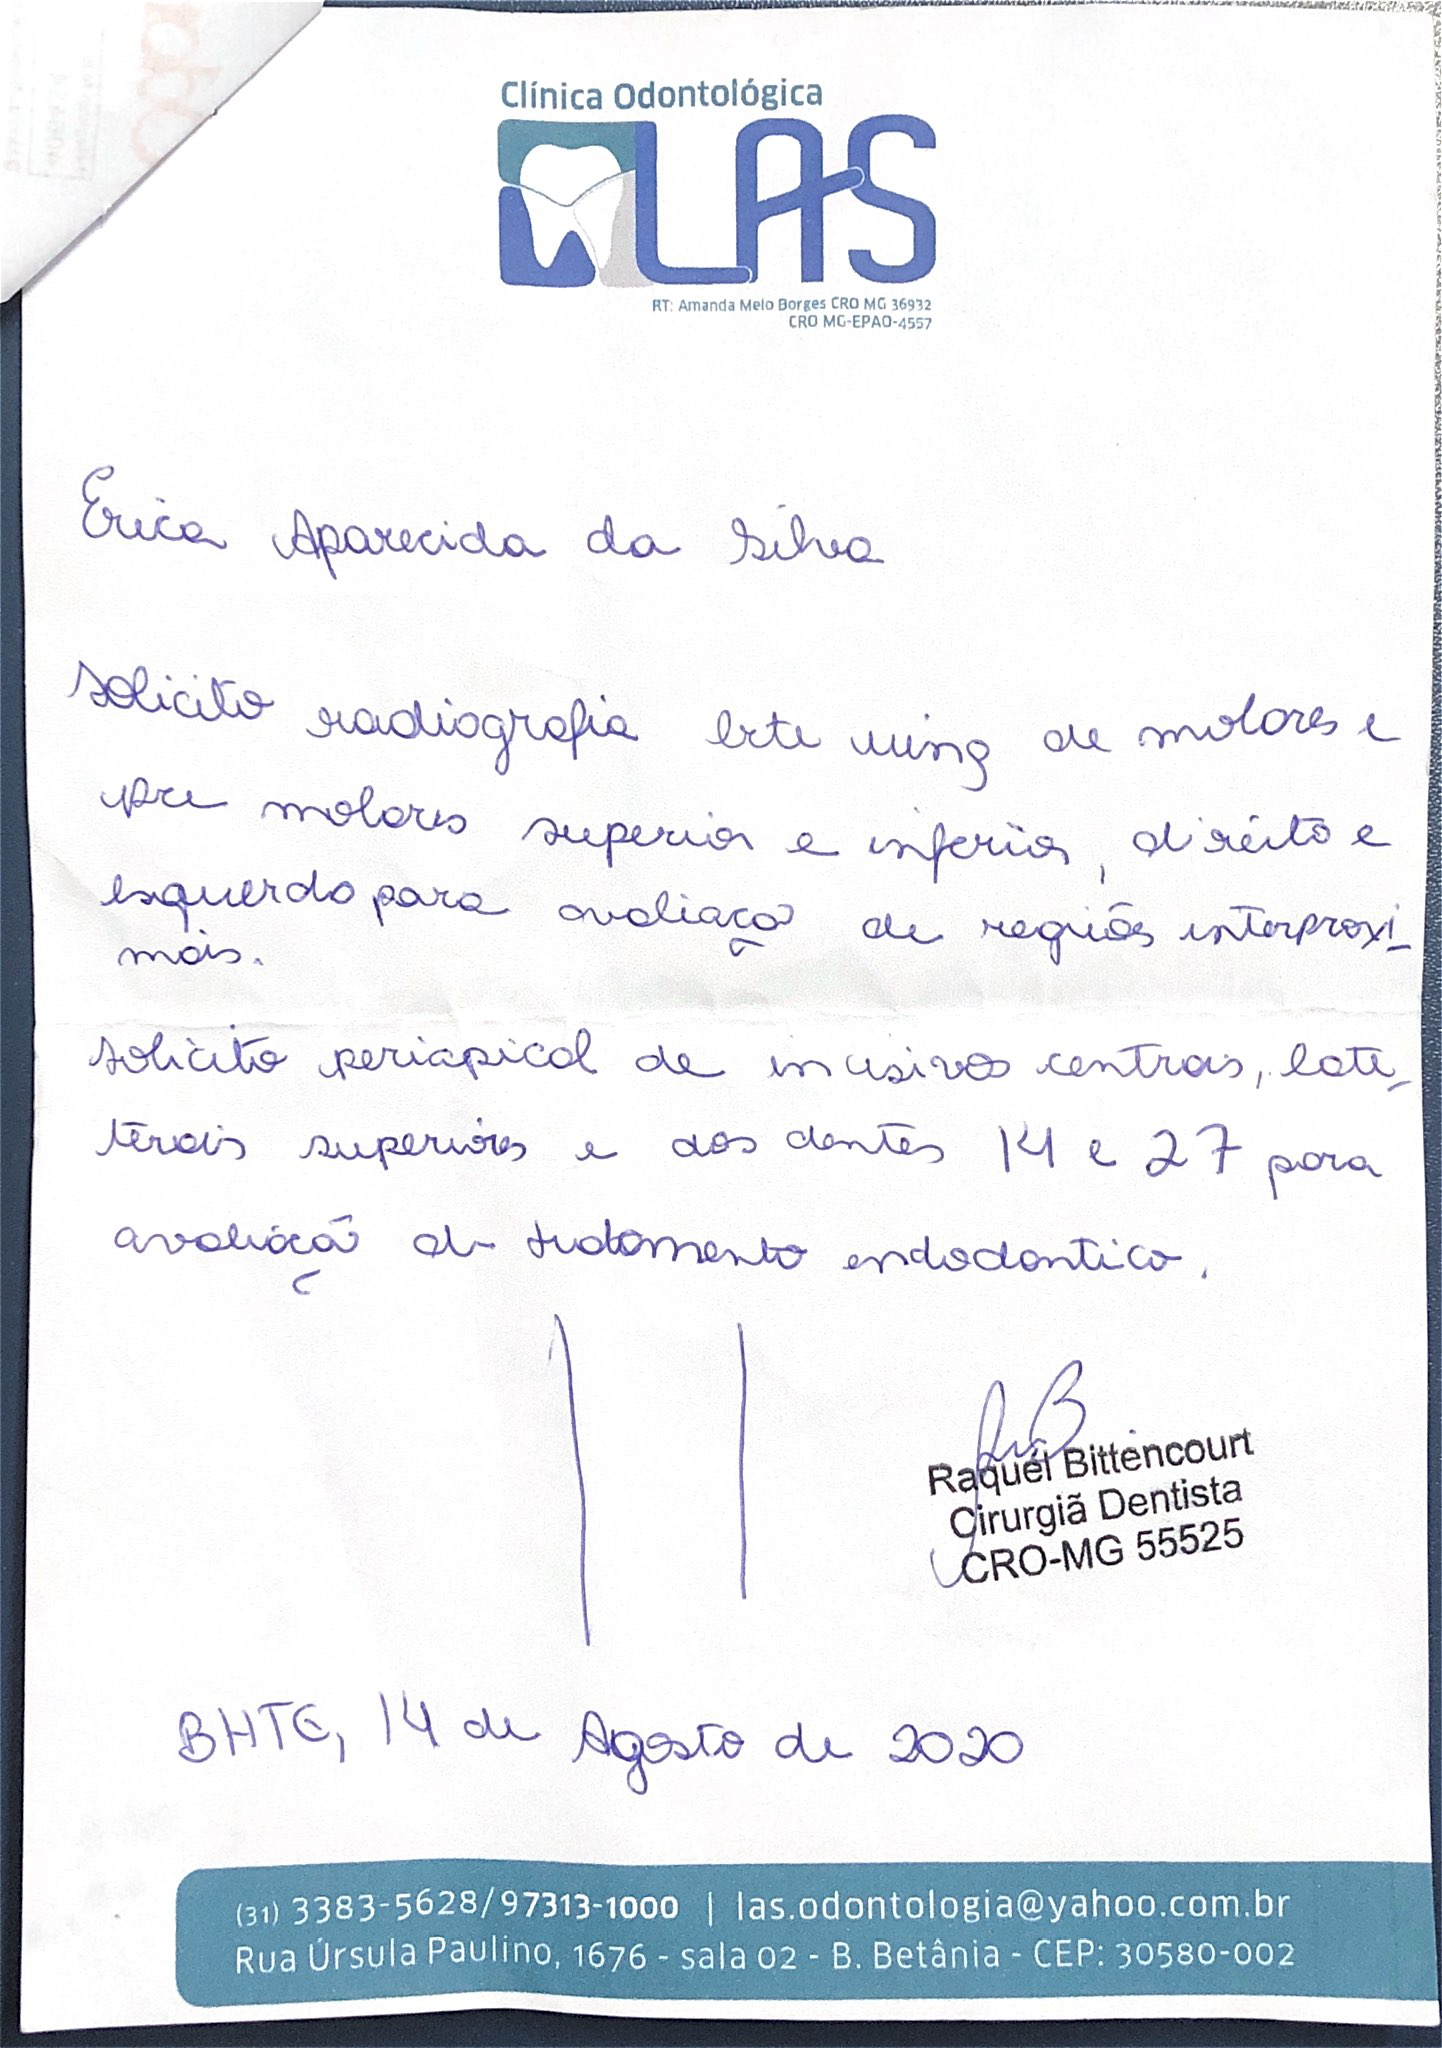 Clínica Odontológica
LAS
RT: Amanda Melo Borges CRO MG 36932
CRO MG-EPAO-4557
Erica Aparecida da Silva
Solicito radiografia bite wing de molares e
pre molares superior e inferior, direito e
esquerdo para avaliação de regiões interproxi_
mais.
Solicito periapical de incisivos centrais, late_
terais superiores e dos dentes 14 e 27 para
avaliação de tratamento endodontico.
Raquel Bittencourt
Cirurgiã Dentista
CRO-MG 55525
BHTE, 14 de Agosto de 2020
(31) 3383-5628/97313-1000 | las.odontologia@yahoo.com.br
Rua Úrsula Paulino, 1676 - sala 02 - B. Betânia - CEP: 30580-002